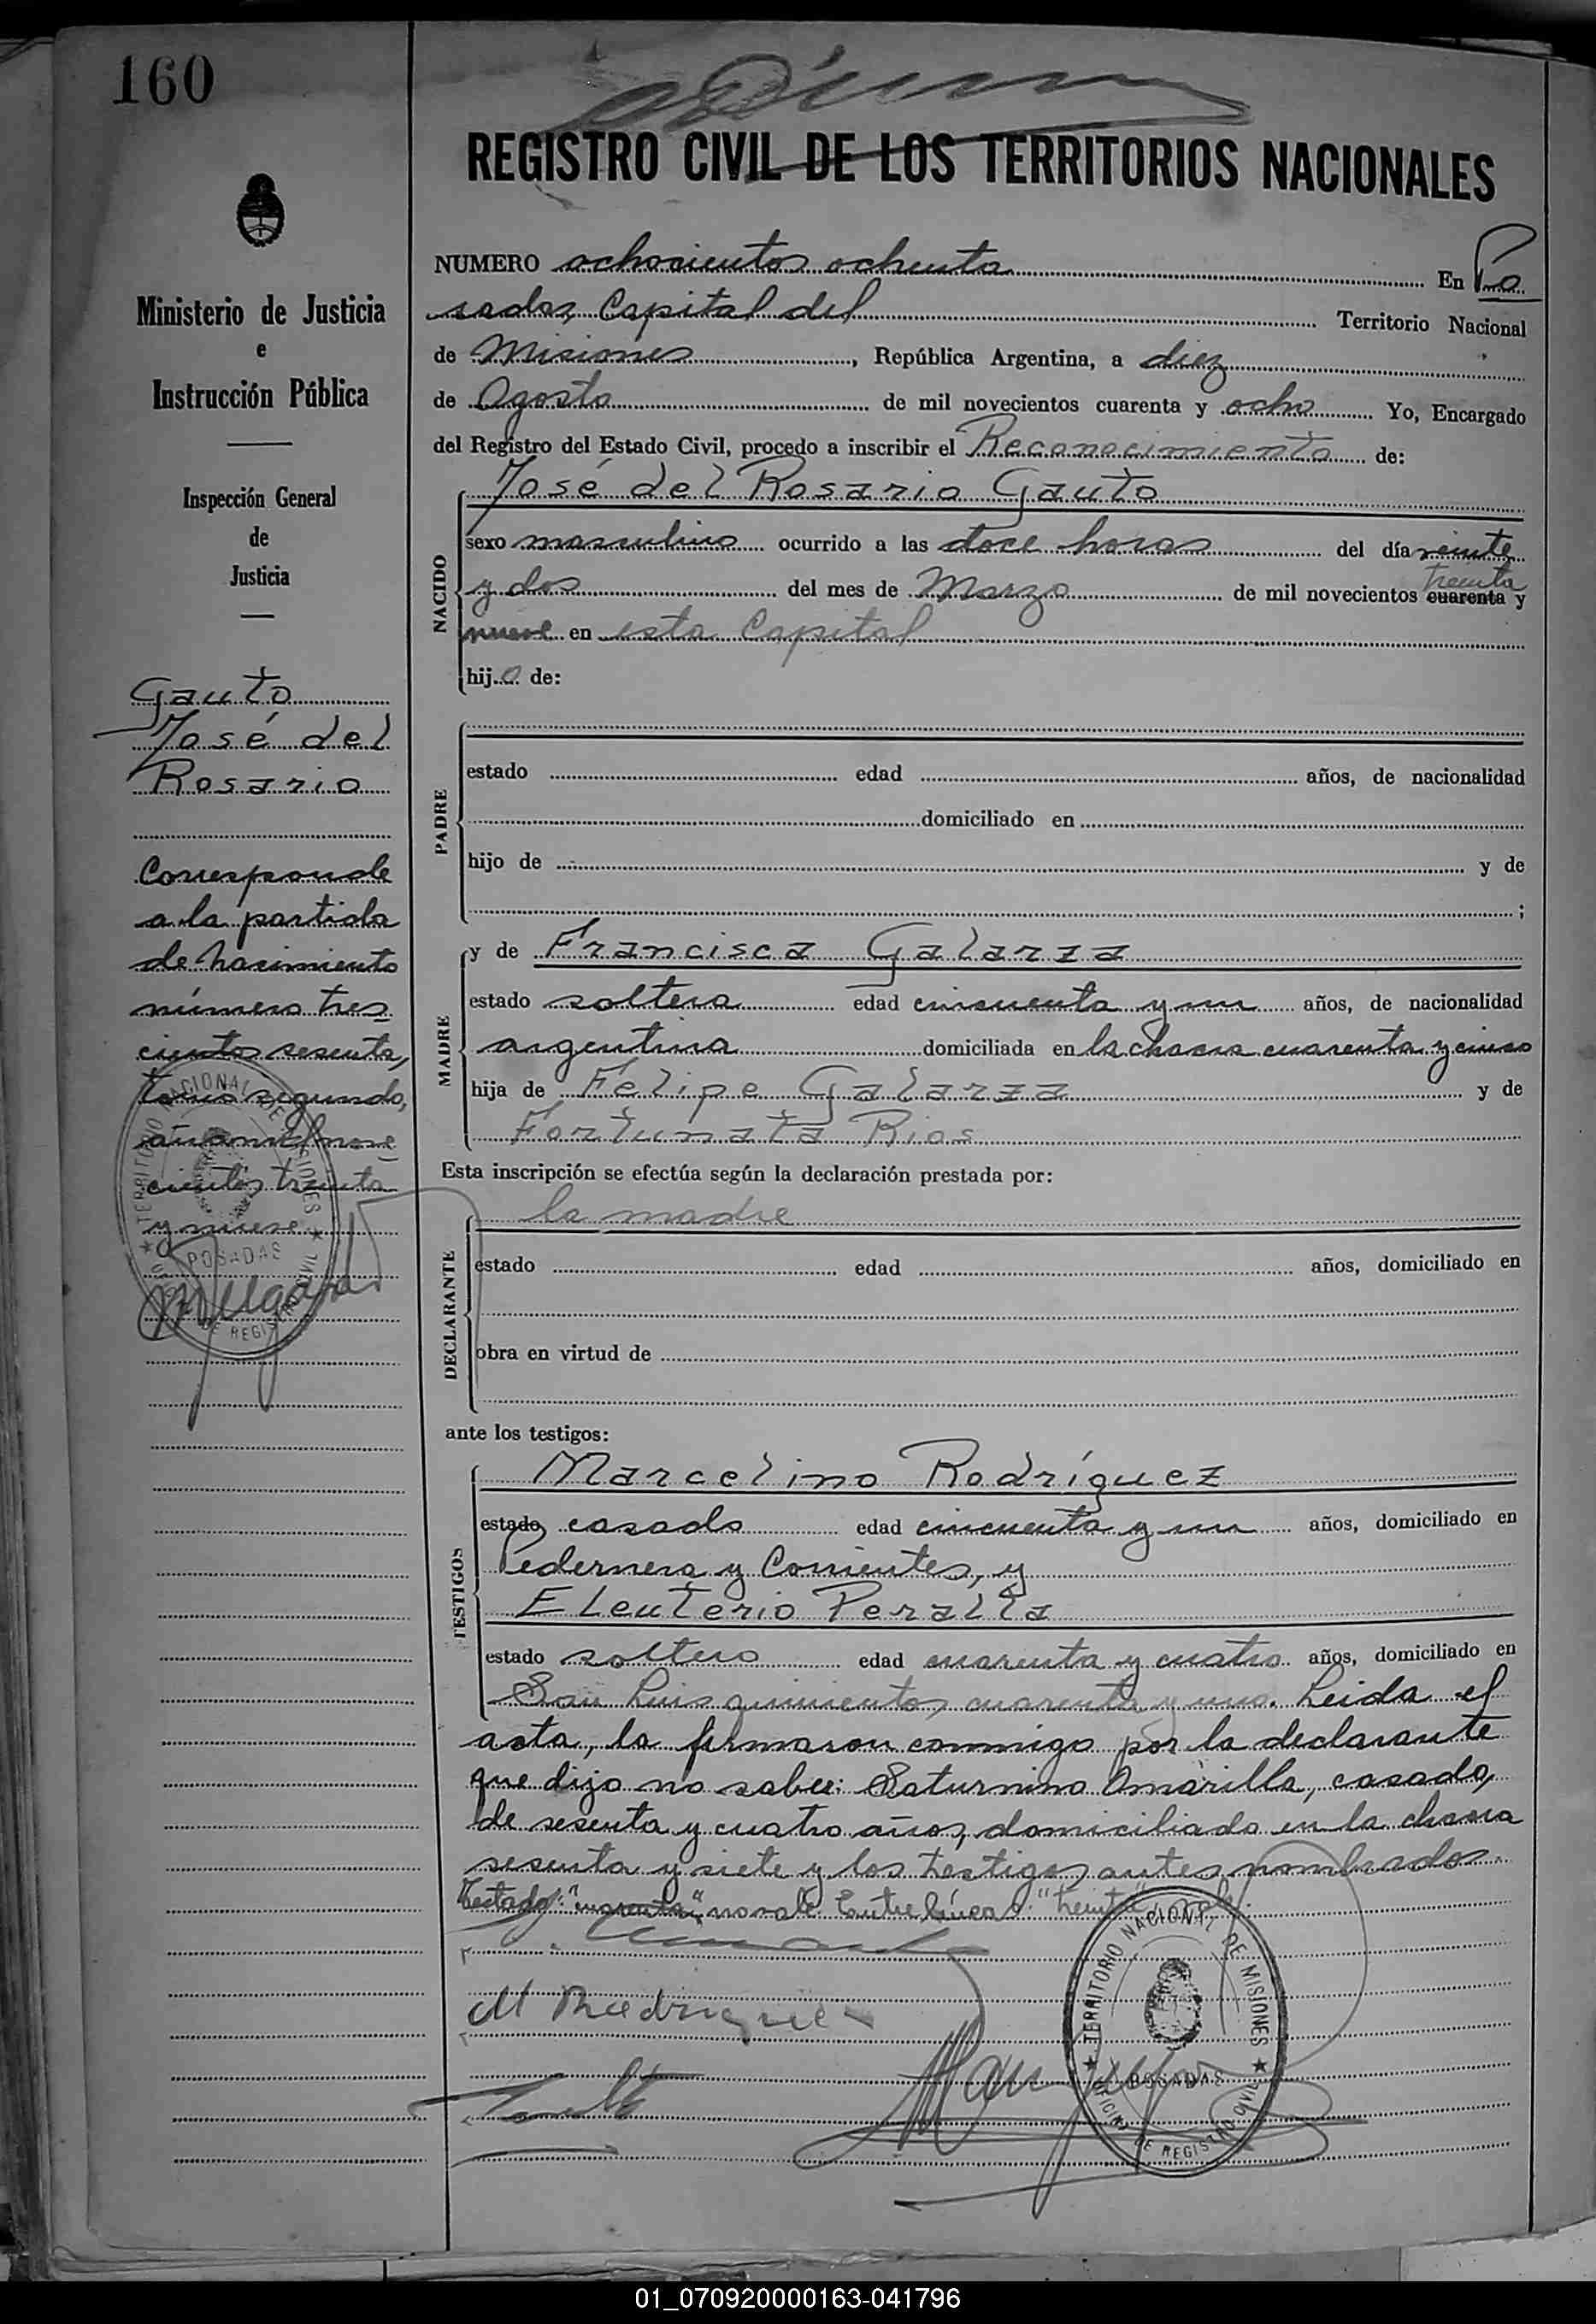 160
REGISTRO CIVIL DE LOS TERRITORIOS NACIONALES
Ministerio de Justicia
e
Instrucción Pública
Inspección General
de
Justicia
Gauto
José del
Rosario
Corresponde
a la partida
de nacimiento
número tres
cientos sesenta,
tomo segundo,
año mil nove
cientos treinta
y nueve
TERRITORIO NACIONAL DE MISIONES
POSADAS
NUMERO ochocientos ochenta En Po
sadas, Capital del Territorio Nacional
de Misiones, República Argentina, a diez
de Agosto de mil novecientos cuarenta y ocho Yo, Encargado
del Registro del Estado Civil, procedo a inscribir el Reconocimiento de:
José del Rosario Gauto
NACIDO
sexo masculino ocurrido a las doce horas del día veinte
y dos del mes de Marzo de mil novecientos cuarenta treinta y
nueve en esta Capital
hijo de:
PADRE
estado edad años, de nacionalidad
domiciliado en
hijo de y de
;
MADRE
y de Francisca Galarza
estado soltera edad cincuenta y un años, de nacionalidad
argentina domiciliada en la chacra cuarenta y cinco
hija de Felipe Galarza y de
Fortunata Rios
Esta inscripción se efectúa según la declaración prestada por:
DECLARANTE
la madre
estado edad años, domiciliado en
obra en virtud de
ante los testigos:
TESTIGOS
Marcelino Rodríguez
estado casado edad cincuenta y un años, domiciliado en
Pedernera y Corrientes, y
Eleuterio Peralta
estado soltero edad cuarenta y cuatro años, domiciliado en
San Luis quinientos cuarenta y uno. Leida el
acta, la firmaron conmigo por la declarante
que dijo no saber: Saturnino Amarilla, casado,
de sesenta y cuatro años, domiciliado en la chacra
sesenta y siete y los testigos antes nombrados.
Testado: "cuarenta" no vale. Entre líneas: "treinta", vale.
M Rodriguez
TERRITORIO NACIONAL DE MISIONES
POSADAS
OFICINA DE REGISTRO CIVIL
01_070920000163-041796